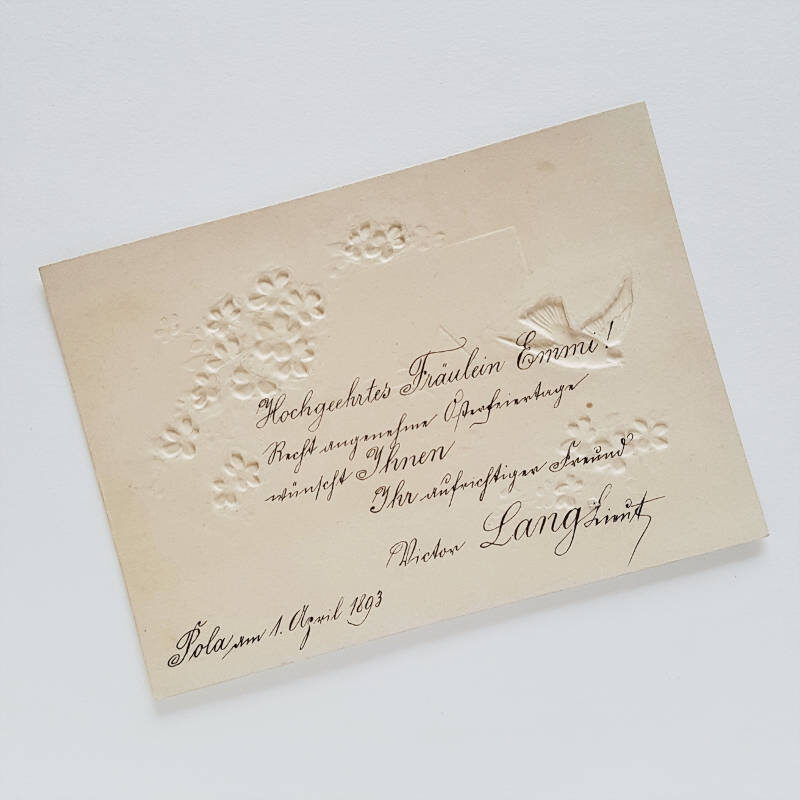 Hochgeehrtes Fräulein Emmi!
Recht angenehme Osterfeiertage
wünscht Ihnen
Ihr aufrichtiger Freund
Victor Lang Lieut
Pola am 1. April 1893